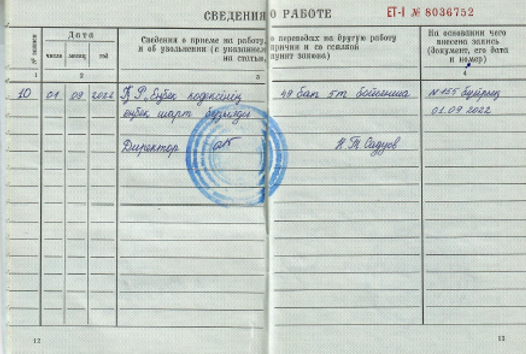 СВЕДЕНИЯ О РАБОТЕ ЕТ-I № 8036752
№ записи
Дата
число месяц год
Сведения о приеме на работу, о переводах на другую работу
и об увольнении (с указанием причин и со ссылкой
на статью, пункт закона)
На основании чего
внесена запись
(Документ, его дата
и номер)
1 2 3 4
10 01 09 2022 ҚР, Еңбек кодексінің 49 бап 5т бойынша №155 бұйрық
еңбек шарт бұзылды 01.09 2022
Директор
12 13